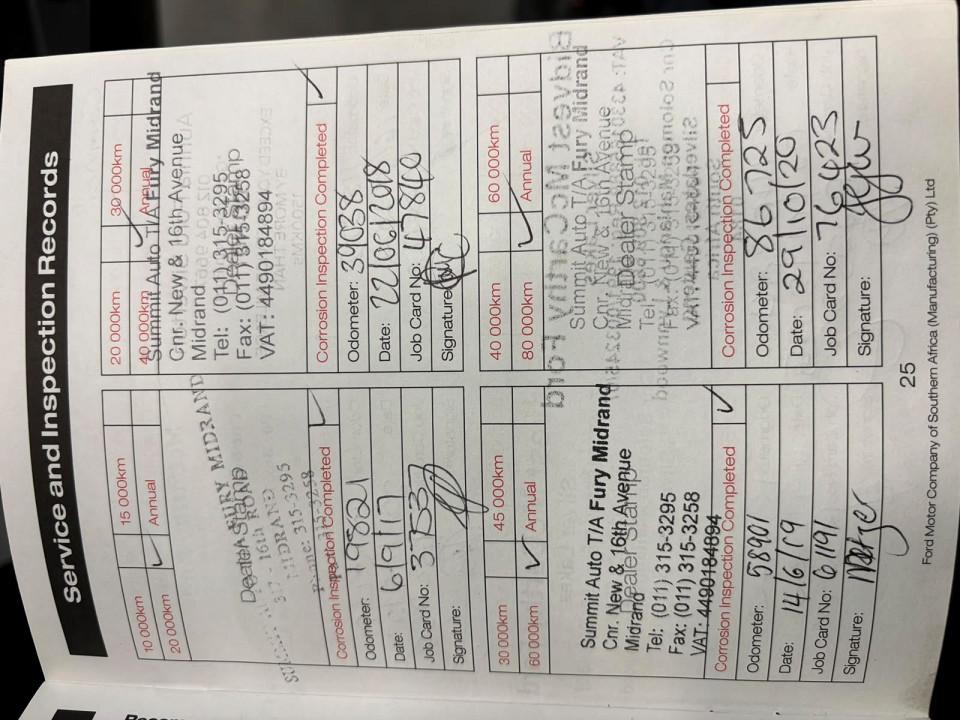 Service and Inspection Records
10 000km
15 000km
20 000km
Annual
Dealer Stamp
FURY MIDRAND
16th ROAD
MIDRAND
315-3295
315-3258
Corrosion Inspection Completed
Odometer: 19821
Date: 6/9/17
Job Card No: 37537
Signature:
20 000km
30 000km
40 000km
Annual
Summit Auto T/A Fury Midrand
Cnr. New & 16th Avenue
Midrand
Dealer Stamp
Tel: (011) 315-3295
Fax: (011) 315-3258
VAT: 4490184894
Corrosion Inspection Completed
Odometer: 39038
Date: 22/06/2018
Job Card No: 47840
Signature:
30 000km
45 000km
60 000km
Annual
Summit Auto T/A Fury Midrand
Cnr. New & 16th Avenue
Midrand
Dealer Stamp
Tel: (011) 315-3295
Fax: (011) 315-3258
VAT: 4490184894
Corrosion Inspection Completed
Odometer: 58901
Date: 14/6/19
Job Card No: 61191
Signature:
40 000km
60 000km
80 000km
Annual
Summit Auto T/A Fury Midrand
Cnr. New & 16th Avenue
Midrand
Dealer Stamp
Tel: (011) 315-3295
Fax: (011) 315-3258
VAT: 4490184894
Corrosion Inspection Completed
Odometer: 86725
Date: 29/10/20
Job Card No: 76423
Signature:
25
Ford Motor Company of Southern Africa (Manufacturing) (Pty) Ltd